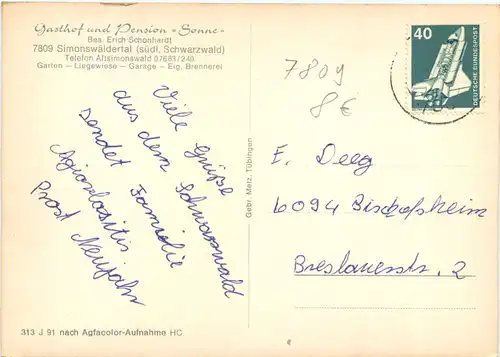 Gasthof und Pension »Sonne«
Bes. Erich Schonhardt
7809 Simonswäldertal (südl. Schwarzwald)
Telefon Altsimonswald 07683/240
Garten – Liegewiese – Garage – Eig. Brennerei
Viele Grüße
aus dem Schwarzwald
sendet Familie
Prost Neujahr
Gebr. Metz, Tübingen
313 J 91 nach Agfacolor-Aufnahme HC
7809
8€
40
DEUTSCHE BUNDESPOST
E. Deeg
6094 Bischofsheim
Breslauerstr. 2